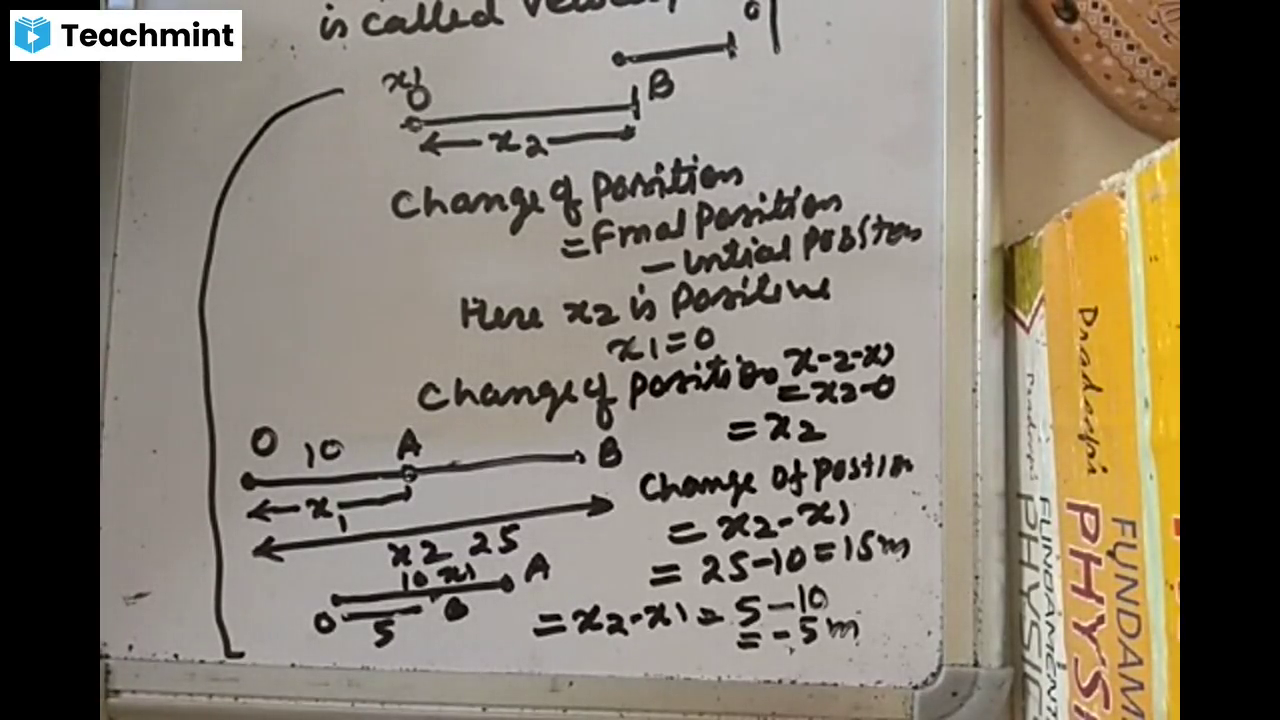 Teachmint
is called
x1
O
B
x2
Change of Position
= Final Position
- Initial Position
Here x2 is Positive
x1=0
Change of position x-2-x1
= x2-0
= x2
O 10 A B
x1
x2 25
Change of Position
= x2-x1
= 25-10=15m
10 x1 A
O B
5
= x2-x1 = 5-10
= -5m
Pradeep's
FUNDAM
PHYSI
Pradeep's
FUNDAMENT
PHYSIC